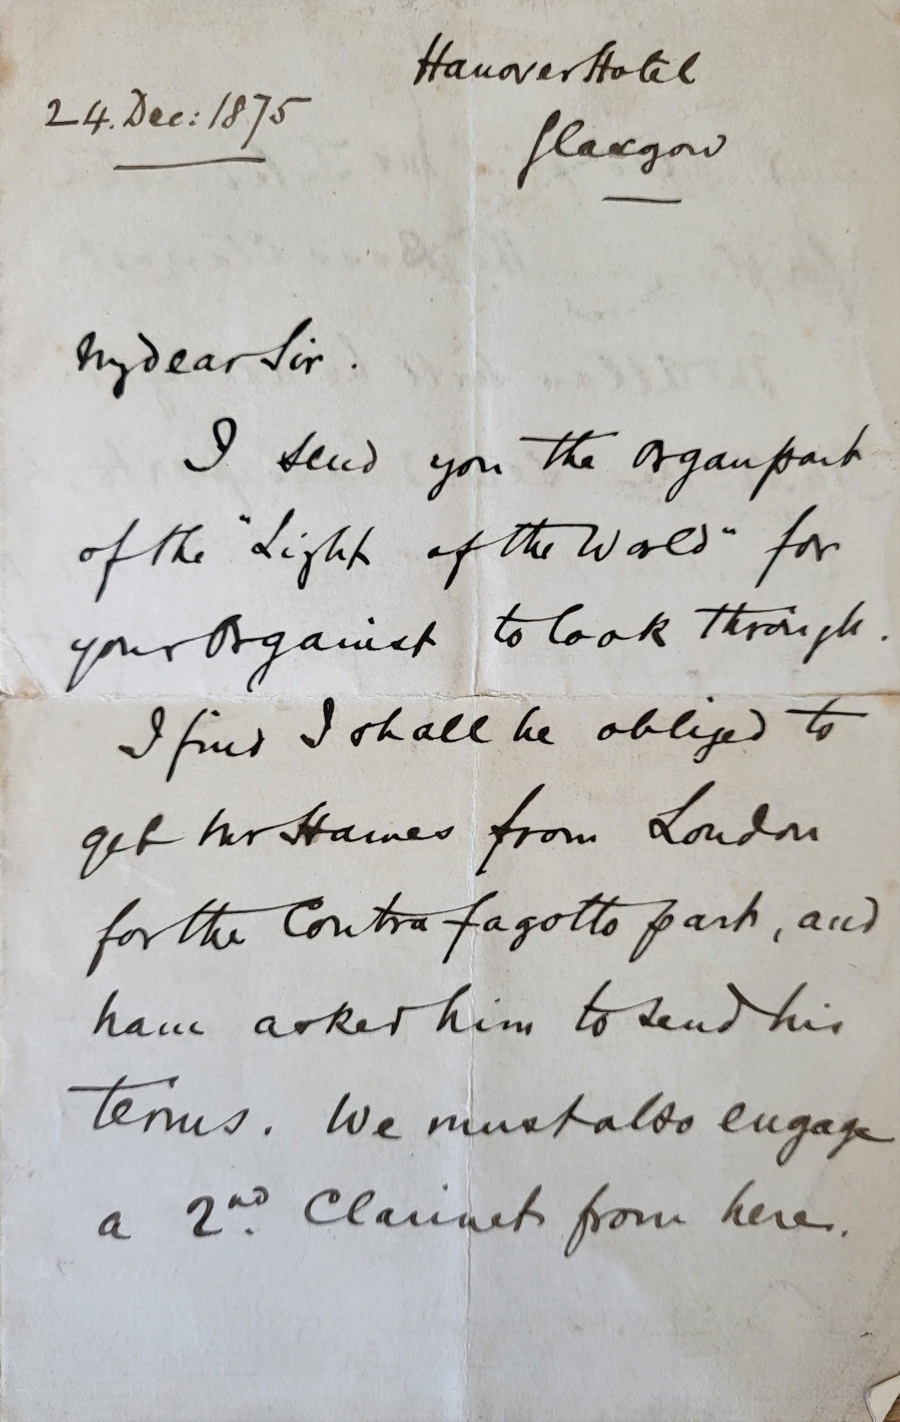 Hanover Hotel
24. Dec: 1875
Glasgow
My dear Sir.
I send you the Organ part
of the "Light of the World" for
your Organist to look through.
I find I shall be obliged to
get Mr Hawes from London
for the Contra fagotto part, and
have asked him to send his
terms. We must also engage
a 2nd. Clarinet from here.